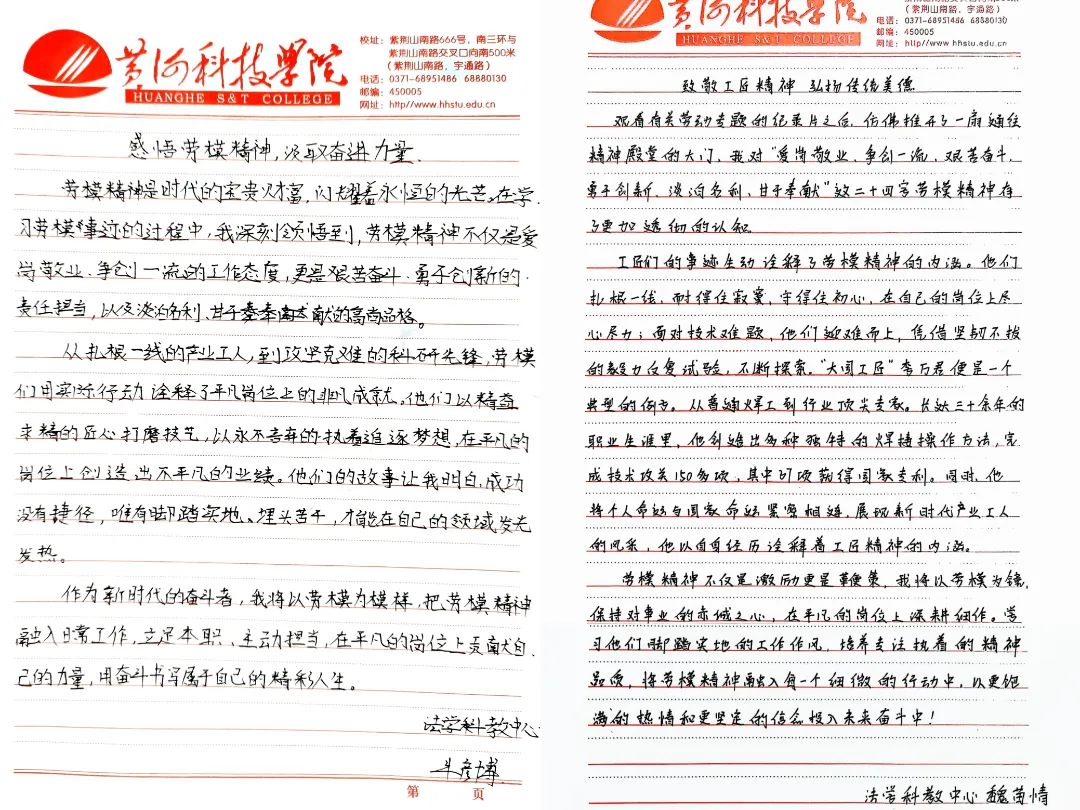 黄河科技学院
HUANGHE S&T COLLEGE
校址：紫荆山南路666号，南三环与
紫荆山南路交叉口向南500米
（紫荆山南路，宇通路）
电话：0371-68951486 68880130
邮编：450005
网址：http//www.hhstu.edu.cn
感悟劳模精神，汲取奋进力量．
劳模精神是时代的宝贵财富，闪耀着永恒的光芒。在学
习劳模事迹的过程中，我深刻领悟到，劳模精神不仅是爱
岗敬业、争创一流的工作态度，更是艰苦奋斗、勇于创新的
责任担当，以及淡泊名利、甘于奉献的高尚品格。
从扎根一线的产业工人，到攻坚克难的科研先锋，劳模
们用实际行动诠释了平凡岗位上的非凡成就。他们以精益
求精的匠心打磨技艺，以永不言弃的执着追逐梦想，在平凡的
岗位上创造出不平凡的业绩。他们的故事让我明白，成功
没有捷径，唯有脚踏实地、埋头苦干，才能在自己的领域发光
发热。
作为新时代的奋斗者，我将以劳模为榜样，把劳模精神
融入日常工作，立足本职、主动担当，在平凡的岗位上贡献自
己的力量，用奋斗书写属于自己的精彩人生。
法学科教中心
彦博
第 页
黄河科技学院
HUANGHE S&T COLLEGE
（紫荆山南路，宇通路）
电话：0371-68951486 68880130
邮编：450005
网址：http//www.hhstu.edu.cn
致敬工匠精神 弘扬传统美德
观看有关劳动专题的纪录片之后，仿佛推开了一扇通往
精神殿堂的大门，我对“爱岗敬业、争创一流，艰苦奋斗、
勇于创新，淡泊名利、甘于奉献”这二十四字劳模精神有
了更加透彻的认知
工匠们的事迹生动诠释了劳模精神的内涵。他们
扎根一线，耐得住寂寞，守得住初心，在自己的岗位上尽
心尽力；面对技术难题，他们迎难而上，凭借坚韧不拔
的毅力反复试验，不断探索。“大国工匠”李万君便是一个
典型的例子。从普通焊工到行业顶尖专家。长达三十余年的
职业生涯里，他创造出多种独特的焊接操作方法，完
成技术攻关150多项，其中37项获得国家专利。同时，他
将个人命运与国家命运紧密相连，展现新时代产业工人
的风采，他以自身经历诠释着工匠精神的内涵。
劳模精神不仅是激励更是鞭策，我将以劳模为镜，
保持对事业的赤诚之心，在平凡的岗位上深耕细作。学
习他们脚踏实地的工作作风，培养专注执着的精神
品质，将劳模精神融入每一个细微的行动中，以更饱
满的热情和更坚定的信念投入未来奋斗中！
法学科教中心 魏苗情